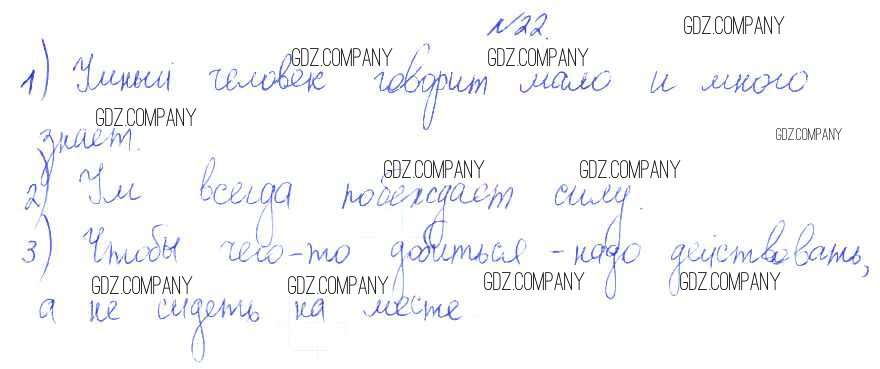 №22.
GDZ.COMPANY
GDZ.COMPANY GDZ.COMPANY
1) Умный человек говорит мало и много
GDZ.COMPANY
GDZ.COMPANY
знает.
GDZ.COMPANY GDZ.COMPANY
2) Ум всегда побеждает силу.
3) Чтобы чего-то добиться - надо действовать,
GDZ.COMPANY GDZ.COMPANY GDZ.COMPANY GDZ.COMPANY
а не сидеть на месте